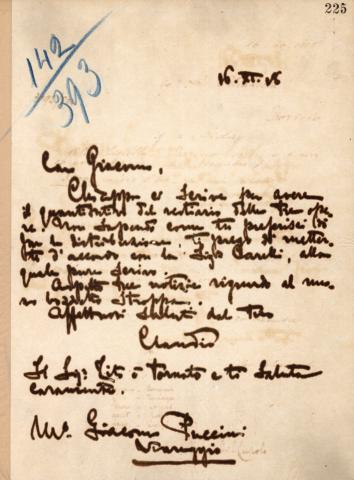 225
142/393
16.XI.18
Caro Giacomo,
Chiappa ci scrive per avere
il quantitativo del vestiario delle tre ope
re. Non sapendo come tu preferisci di
la distribuzione. Ti prego di metter
ti d'accordo con la Sig.a alla
quale pure scrivo.
Aspetto tue notizie riguardo al nuo
vo Stroppa.
Affettuosi saluti dal tuo
Claudio
Il Sig. Tito è tornato e ti saluta
caramente.
Mo. Giacomo Puccini
Viareggio